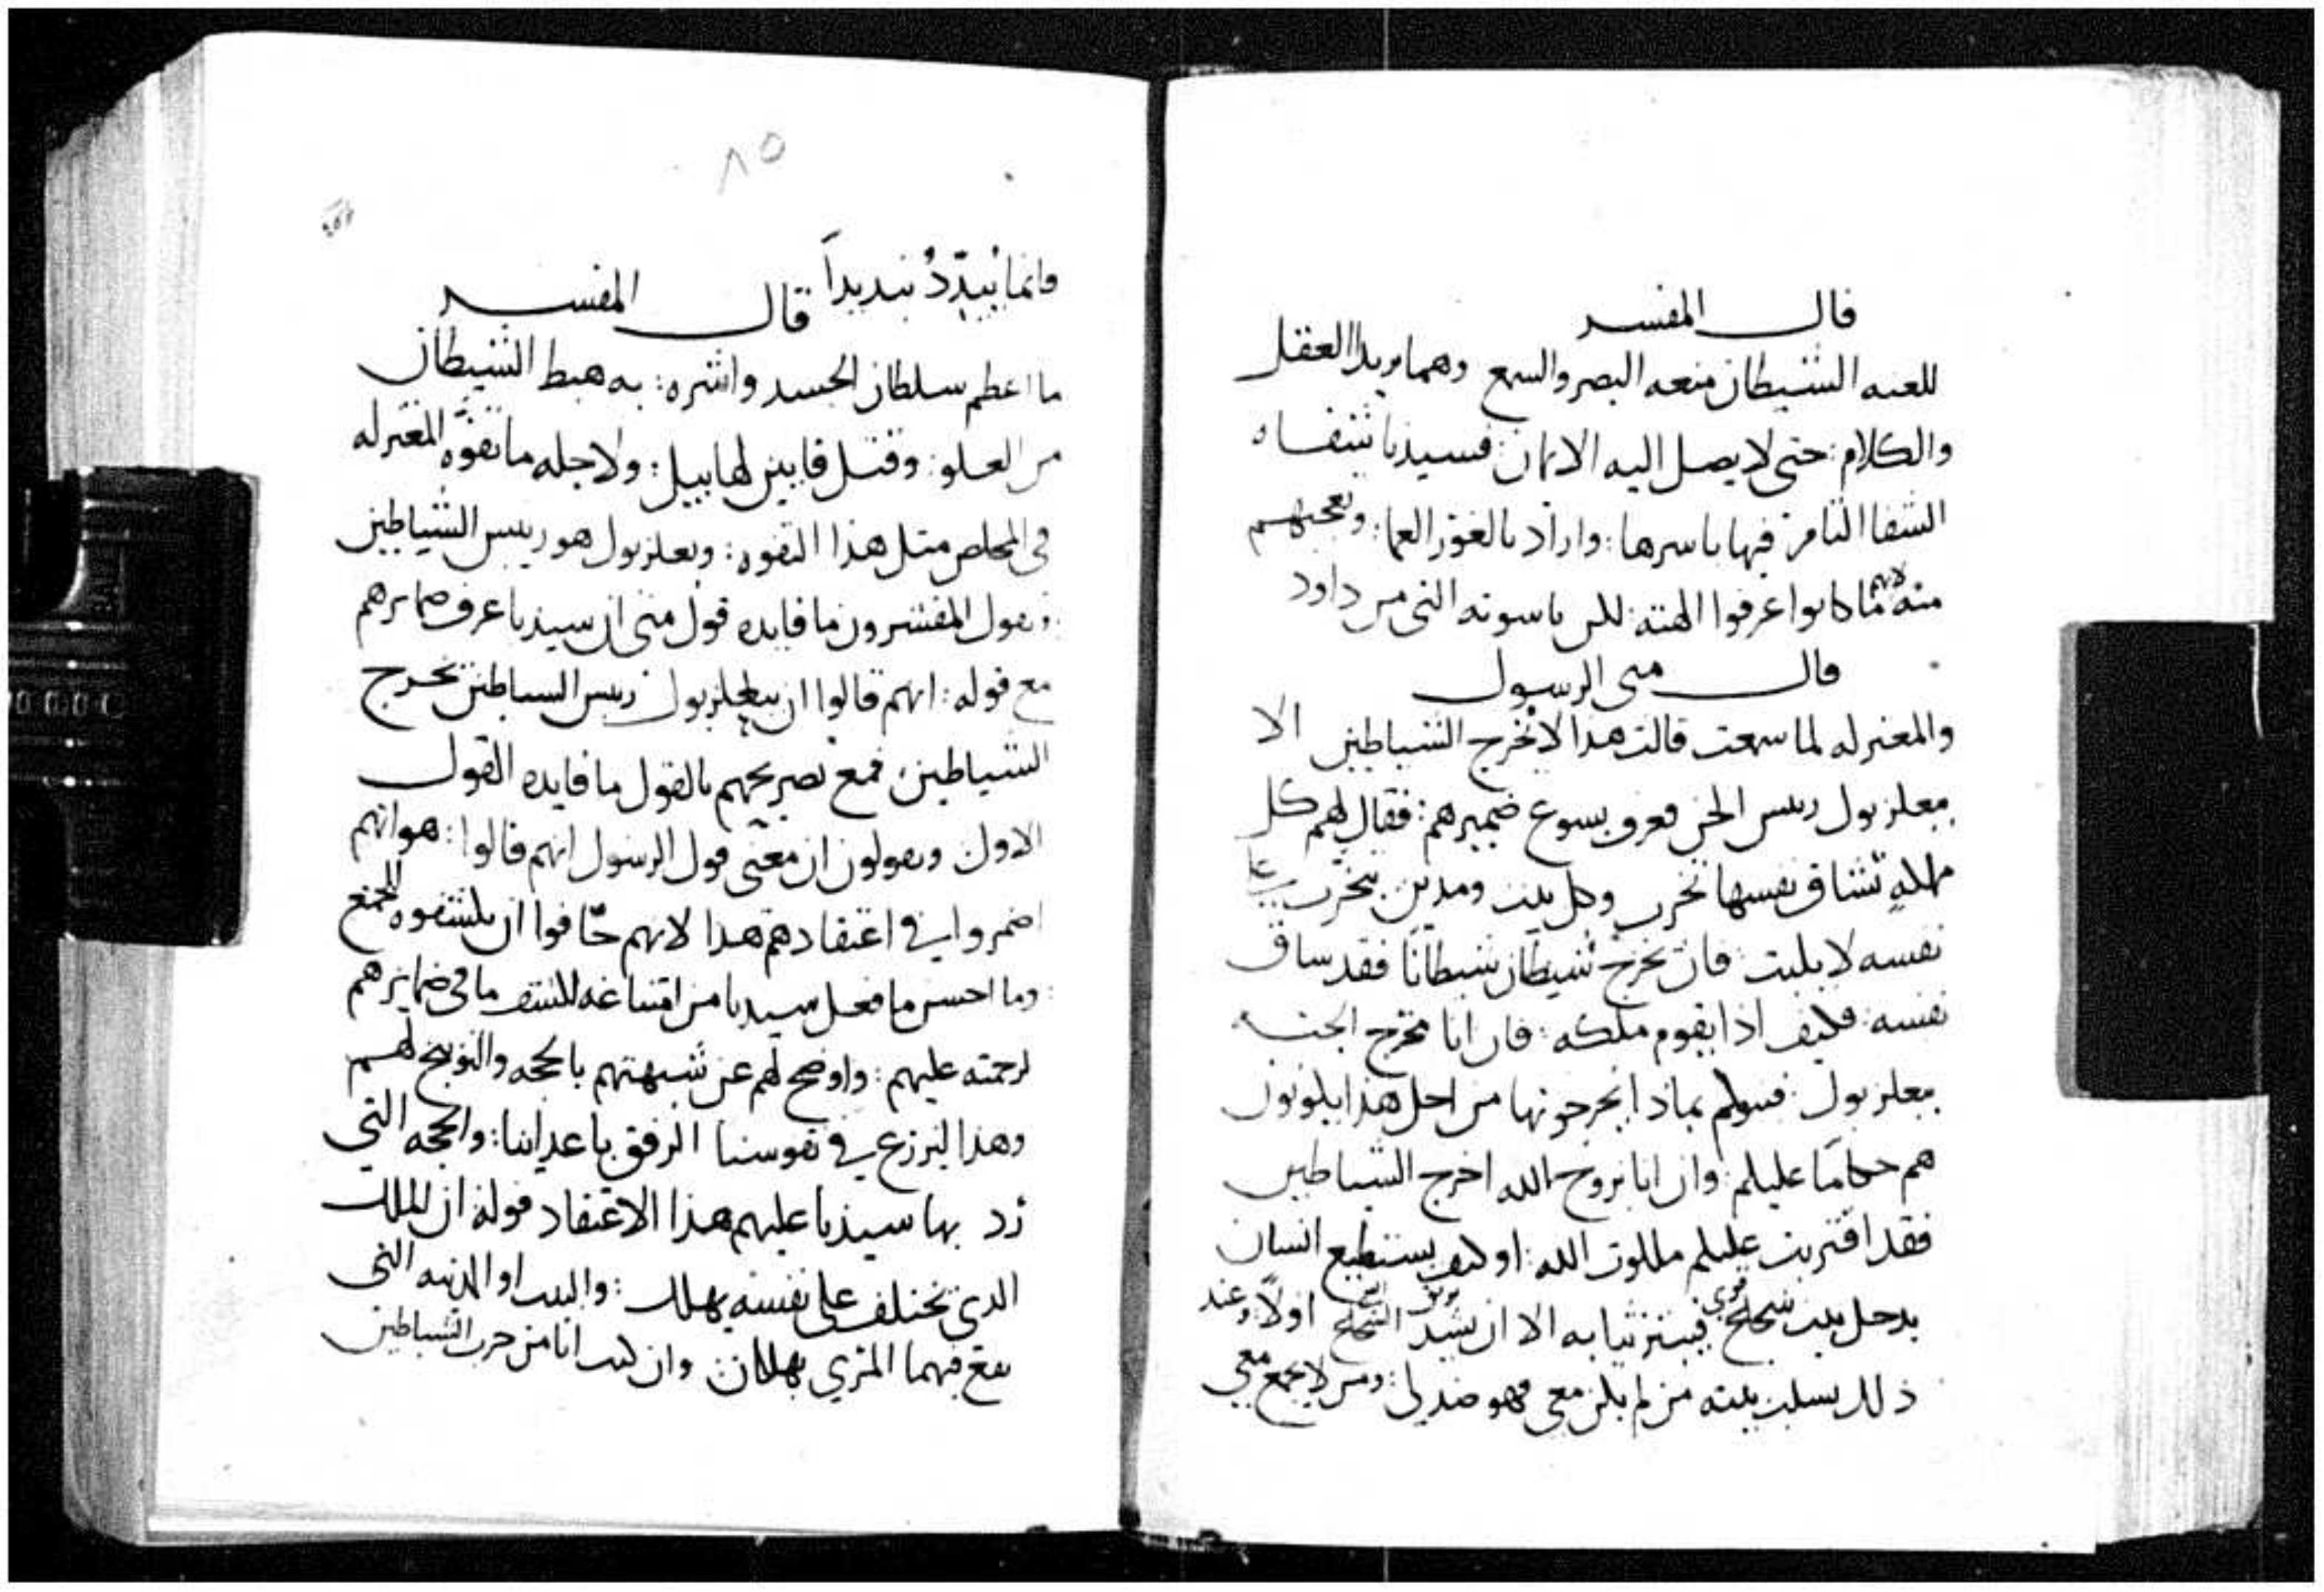 قال المفسر
للعنه الشيطان منعه البصر والسمع وهما بريدا العقل
والكلام: حتى لا يصل اليه الايمان: فسيدنا شفاه
الشفا التام فيها باسرها: واراد بالغور العما: وتعجبهم
منه لانهم ما كانوا عرفوا الهته: لكن ناسوته التي من داود
قال متى الرسول
والمعتزله لما سمعت قالت هذا لا يخرج الشياطين الا
ببعلزبول رييس الجن فعرف يسوع ضميرهم: فقال لهم كل
مملكه تشاق نفسها تخرب وكل بيت ومدينه يتخرب على
نفسه لا يثبت: فان يخرج شيطان شيطانا فقد ساق
نفسه: فكيف اذا يقوم ملكه: فان انا مخرج الجن
ببعلزبول: فبنوكم بماذا يخرجونها من اجل هذا يكونون
هم حكاما عليكم: وان انا بروح الله اخرج الشياطين
فقد اقتربت عليكم ملكوت الله: او كيف يستطيع انسان
يدخل بيت شجاع قوي فيبتز ثيابه الا ان يشد الشجاع اولا وعند
ذلك يسلب بيته من لم يكن معي فهو ضد لي: ومن لا يجمع معي
٨٥
فانما يبدد تبديدا قال المفسر
ما اعظم سلطان الحسد واشره: به هبط الشيطان
من العلو: وقتل قايين لهابيل: ولاجله ما تفوه المعتزله
في المخلص مثل هذا التفوه: وبعلزبول هو رييس الشياطين
ويقول المفسرون ما فايده قول متى ان سيدنا عرف ضمايرهم
مع قوله: انهم قالوا ان ببعلزبول رييس الشياطين يخرج
الشياطين: فمع تصريحهم بالقول ما فايده القول
الاول ويقولون ان معنى قول الرسول انهم قالوا: هو انهم
اضمروا في اعتقادهم هذا لانهم خافوا ان يكشفوه للجمع
: وما احسن ما فعل سيدنا من امتناعه لكشف ما في ضمايرهم
لرحمته عليهم: واوضح لهم عن شبهتهم بالحجه والتوبيخ لهم
وهذا ليزرع في نفوسنا الرفق باعداينا: والحجه التي
رد بها سيدنا عليهم هذا الاعتقاد قوله ان الملك
الذي يختلف على نفسه يهلك: والبيت او المدينه التي
يقع فيهما المري يهلكان وان كنت انا من حزب الشياطين